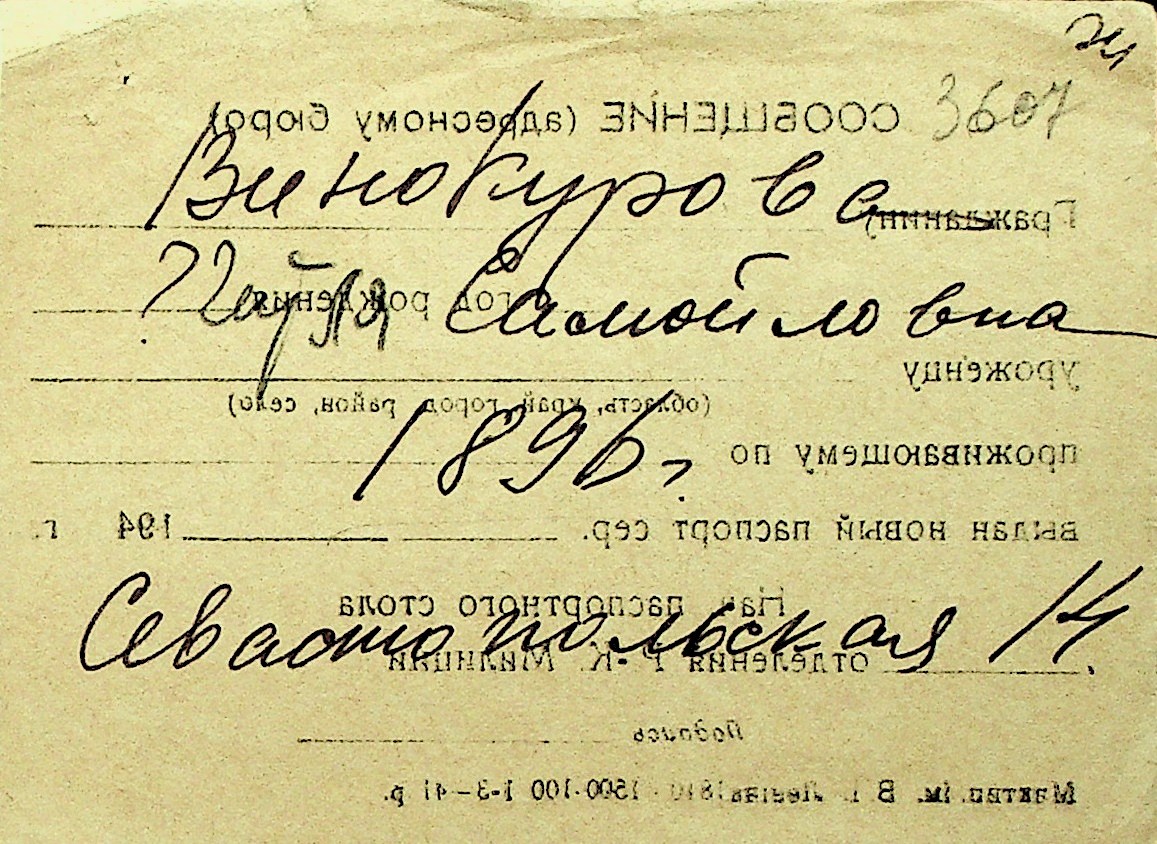 3607
СООБЩЕНИЕ (адресному бюро)
Винокурова
Гражданину
Самойловна
год рождения
уроженцу
(область, край, город, район, село)
1896 г.
проживающему по
выдан новый паспорт сер. 194 г.
Нач. паспортного стола
Севастопольская 14
отделения Р.-К. Милиции
Подпись
1500-100 1-3-41 р.